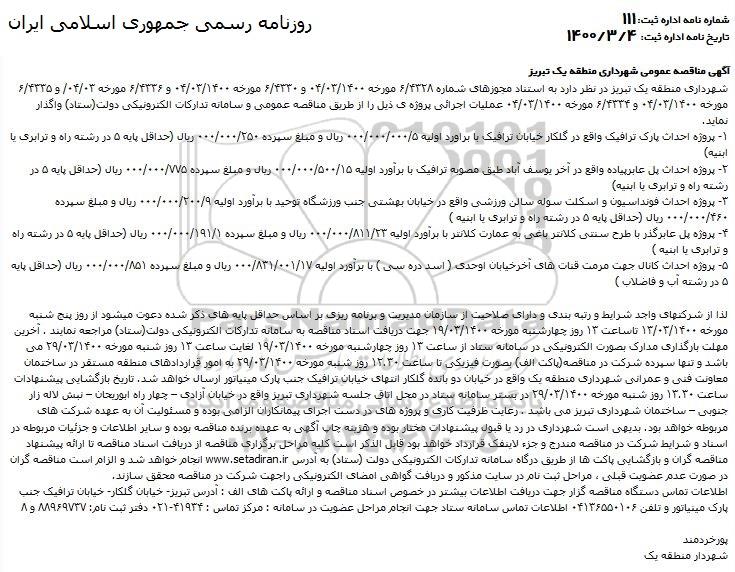 روزنامه رسمی جمهوری اسلامی ایران
شماره نامه اداره ثبت: ۱۱۱
تاریخ نامه اداره ثبت: ۱۴۰۰/۳/۴
آگهی مناقصه عمومی شهرداری منطقه یک تبریز
شهرداری منطقه یک تبریز در نظر دارد به استناد مجوزهای شماره ۶/۴۳۲۸ مورخه ۰۴/۰۳/۱۴۰۰ و ۶/۴۳۳۰ مورخه ۰۴/۰۳/۱۴۰۰ و ۶/۴۳۳۶ مورخه ۰۴/۰۳/ و ۶/۴۳۳۵
مورخه ۰۴/۰۳/۱۴۰۰ و ۶/۴۳۳۴ مورخه ۰۴/۰۳/۱۴۰۰ عملیات اجرائی پروژه ی ذیل را از طریق مناقصه عمومی و سامانه تدارکات الکترونیکی دولت(ستاد) واگذار
نماید.
۱- پروژه احداث پارک ترافیک واقع در گلکار خیابان ترافیک با براورد اولیه ۰۰۰/۰۰۰/۰۰۰/۵ ریال و مبلغ سپرده ۰۰۰/۰۰۰/۲۵۰ ریال (حداقل پایه ۵ در رشته راه و ترابری یا
ابنیه)
۲- پروژه احداث پل عابرپیاده واقع در آخر یوسف آباد طبق مصوبه ترافیک با برآورد اولیه ۰۰۰/۰۰۰/۵۰۰/۱۵ ریال و مبلغ سپرده ۰۰۰/۰۰۰/۷۷۵ ریال (حداقل پایه ۵ در
رشته راه و ترابری یا ابنیه)
۳- پروژه احداث فونداسیون و اسکلت سوله سالن ورزشی واقع در خیابان بهشتی جنب ورزشگاه توحید با برآورد اولیه ۰۰۰/۰۰۰/۲۰۰/۹ ریال و مبلغ سپرده
۰۰۰/۰۰۰/۴۶۰ ریال (حداقل پایه ۵ در رشته راه و ترابری یا ابنیه )
۴- پروژه پل عابرگذر با طرح سنتی کلانتر باغی به عمارت کلانتر با برآورد اولیه ۰۰۰/۰۰۰/۸۱۱/۲۳ ریال و مبلغ سپرده ۰۰۰/۰۰۰/۱۹۱/۱ ریال (حداقل پایه ۵ در رشته راه
و ترابری یا ابنیه )
۵- پروژه احداث کانال جهت مرمت قنات های آخرخیابان اوحدی ( اسد دره سی ) با برآورد اولیه ۰۰۰/۸۳۱/۰۰۱/۱۷ ریال و مبلغ سپرده ۰۰۰/۰۰۰/۸۵۱ ریال (حداقل پایه
۵ در رشته آب و فاضلاب )
لذا از شرکتهای واجد شرایط و رتبه بندی و دارای صلاحیت از سازمان مدیریت و برنامه ریزی بر اساس حداقل پایه های ذکر شده دعوت میشود از روز پنج شنبه
مورخه ۱۳/۰۳/۱۴۰۰ تاساعت ۱۳ روز چهارشنبه مورخه ۱۹/۰۳/۱۴۰۰ جهت دریافت اسناد مناقصه به سامانه تدارکات الکترونیکی دولت(ستاد) مراجعه نمایند . آخرین
مهلت بارگذاری مدارک بصورت الکترونیکی در سامانه ستاد از ساعت ۱۳ روز چهارشنبه مورخه ۱۹/۰۳/۱۴۰۰ لغایت ساعت ۱۳ روز شنبه مورخه ۲۹/۰۳/۱۴۰۰ می
باشد و تنها سپرده شرکت در مناقصه(پاکت الف) بصورت فیزیکی تا ساعت ۱۲.۳۰ روز شنبه مورخه ۲۹/۰۳/۱۴۰۰ به امور قراردادهای منطقه مستقر در ساختمان
معاونت فنی و عمرانی شهرداری منطقه یک واقع در خیابان دو بانده گلکار انتهای خیابان ترافیک جنب پارک مینیاتور ارسال خواهد شد. تاریخ بازگشایی پیشنهادات
ساعت ۱۳.۳۰ روز شنبه مورخه ۲۹/۰۳/۱۴۰۰ در بستر سامانه ستاد در محل اتاق جلسه شهرداری تبریز واقع در خیابان آزادی – چهار راه ابوریحان – نبش لاله زار
جنوبی – ساختمان شهرداری تبریز می باشد . رعایت ظرفیت کاری و پروژه های در دست اجرای پیمانکاران الزامی بوده و مسئولیت آن به عهده شرکت های
مربوطه خواهد بود. بدیهی است شهرداری در رد یا قبول پیشنهادات مختار بوده و هزینه چاپ آگهی به عهده برنده مناقصه بوده و سایر اطلاعات و جزئیات مربوطه در
اسناد و شرایط شرکت در مناقصه مندرج و جزء لاینفک قرارداد خواهد بود قابل الذکر است کلیه مراحل برگزاری مناقصه از دریافت اسناد مناقصه تا ارائه پیشنهاد
مناقصه گران و بازگشایی پاکت ها از طریق درگاه سامانه تدارکات الکترونیکی دولت (ستاد) به آدرس www.setadiran.ir انجام خواهد شد و الزام است مناقصه گران
در صورت عدم عضویت قبلی ، مراحل ثبت نام در سایت مذکور و دریافت گواهی امضای الکترونیکی راجهت شرکت در مناقصه محقق سازند.
اطلاعات تماس دستگاه مناقصه گزار جهت دریافت اطلاعات بیشتر در خصوص اسناد مناقصه و ارائه پاکت های الف : آدرس تبریز- خیابان گلکار- خیابان ترافیک جنب
پارک مینیاتور و تلفن ۰۴۱۳۶۵۵۰۱۰۶ اطلاعات تماس سامانه ستاد جهت انجام مراحل عضویت در سامانه : مرکز تماس : ۴۱۹۳۴-۰۲۱ دفتر ثبت نام: ۸۸۹۶۹۷۳۷ و ۸
پورخردمند
شهردار منطقه یک